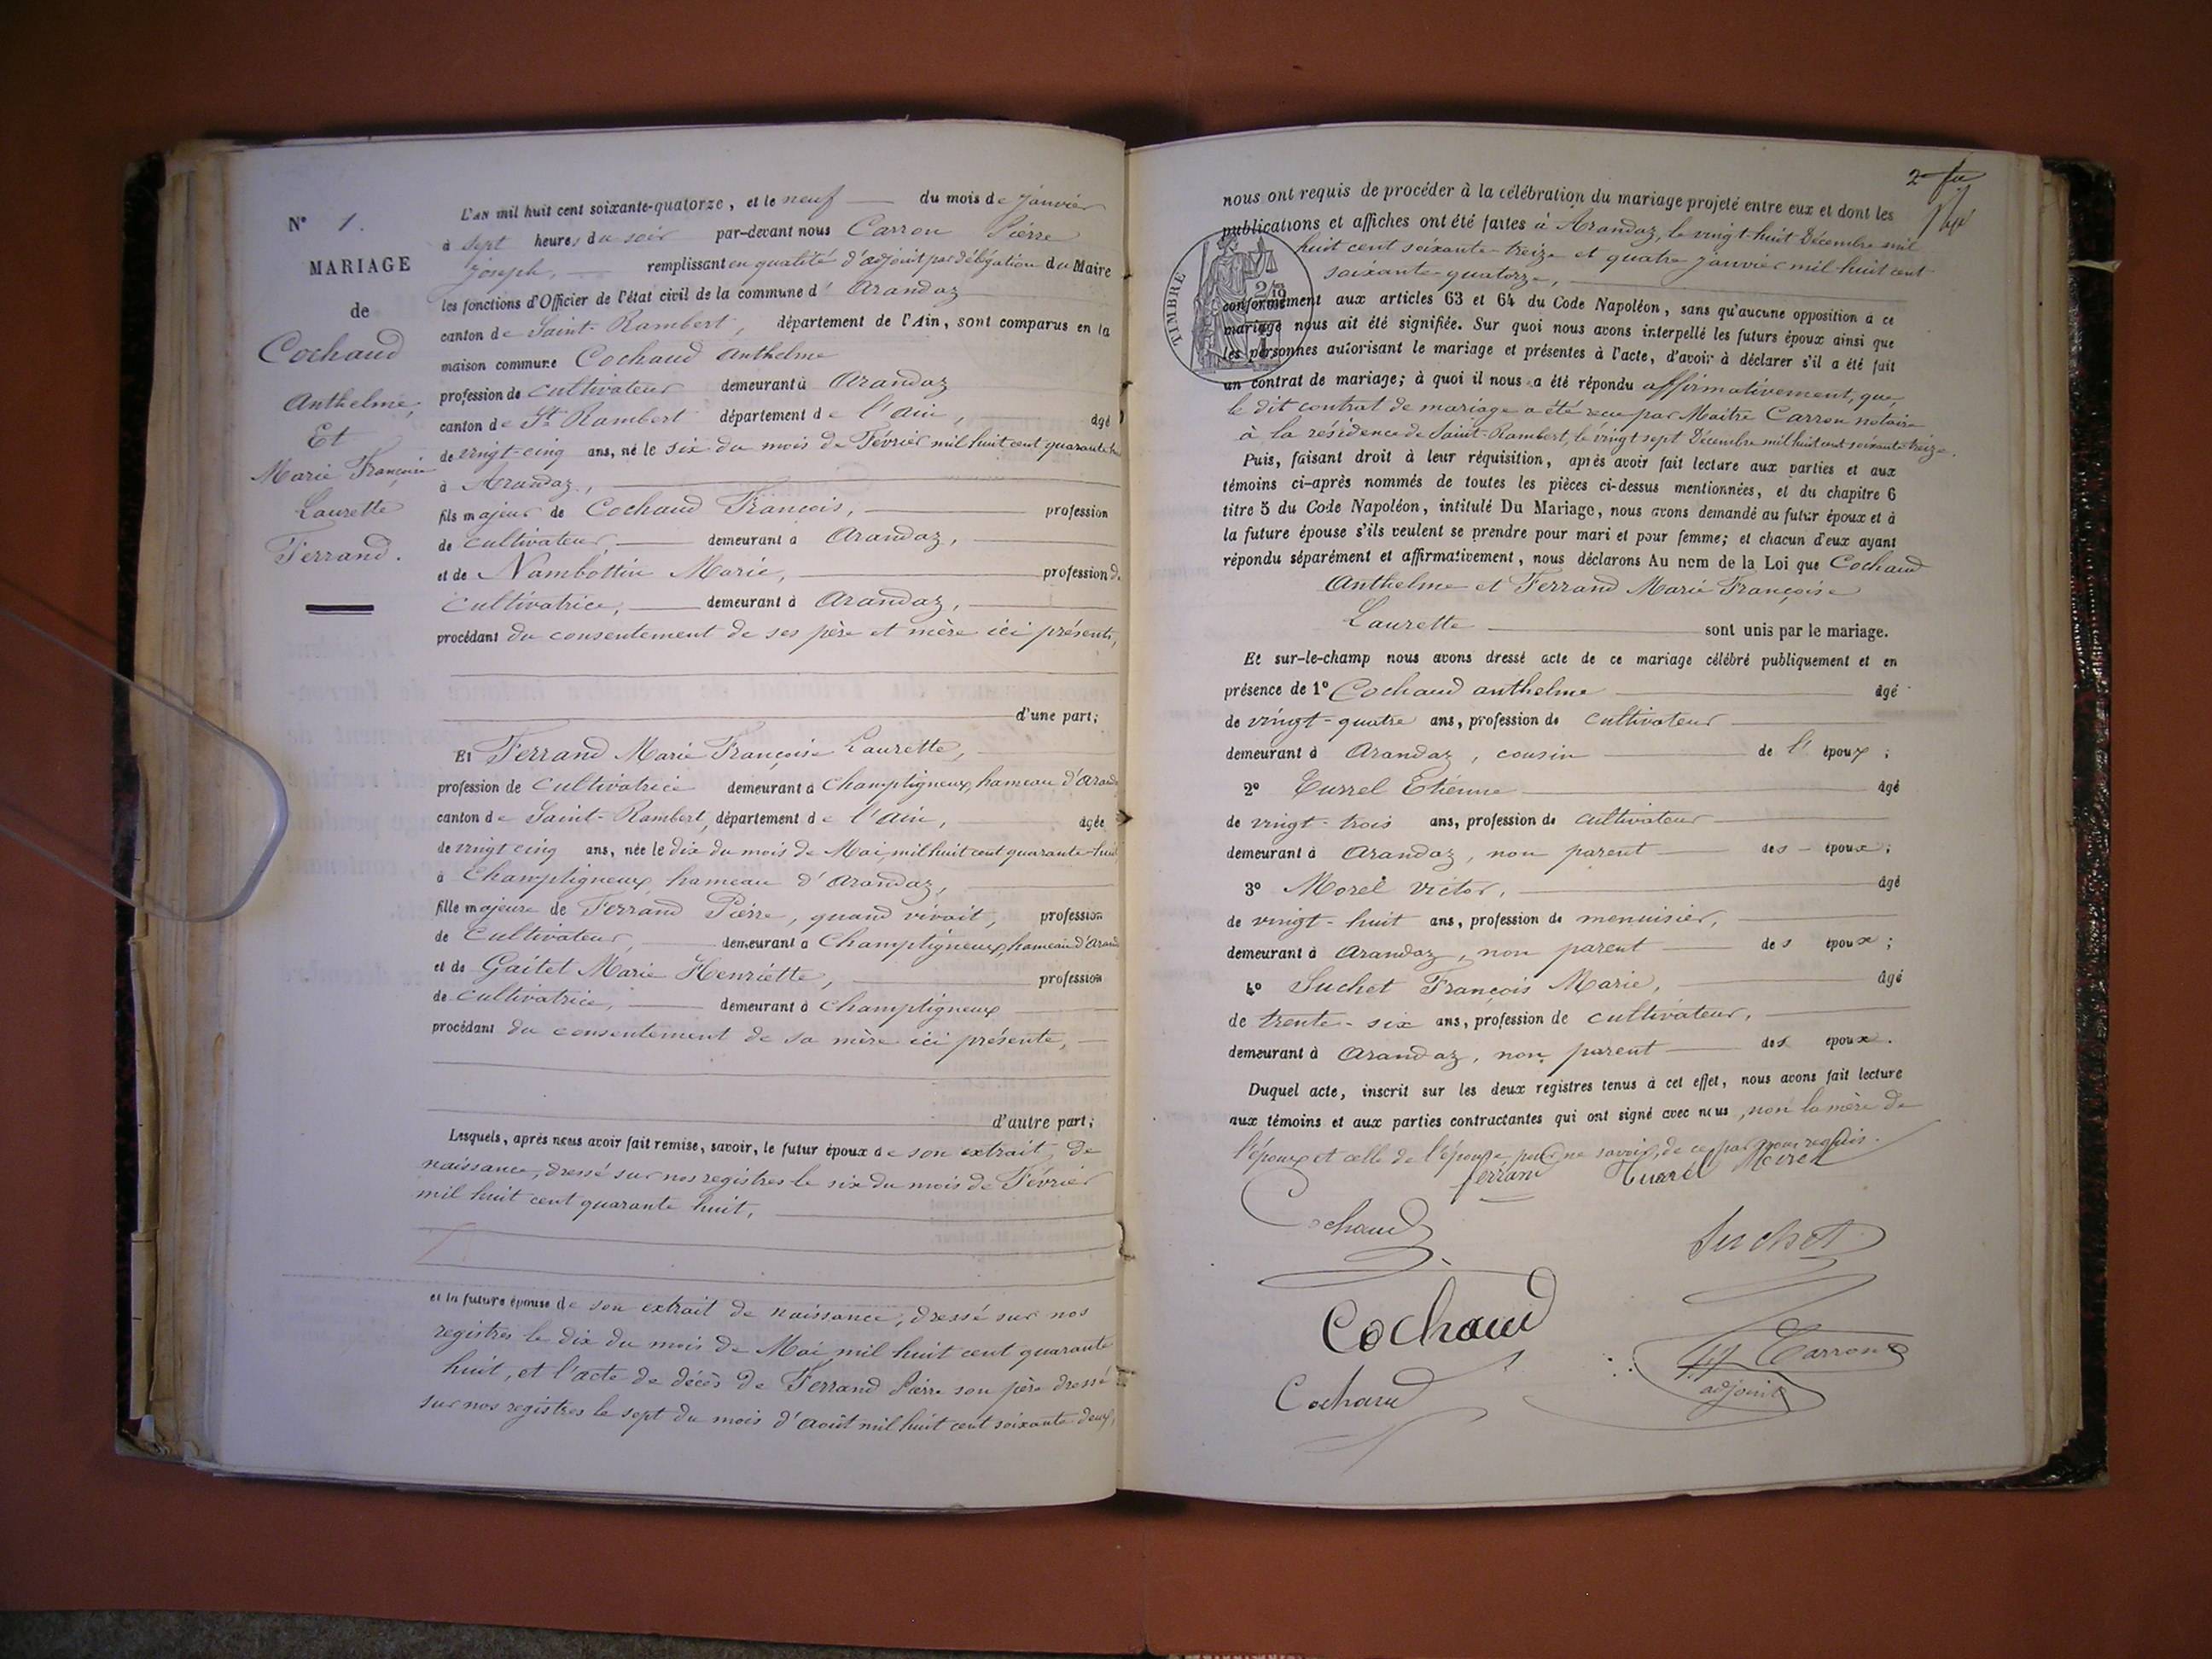 N° 1.
MARIAGE
de
Cochaud
Anthelme,
Et
Marie Françoise
Laurette
Ferrand.
L'an mil huit cent soixante-quatorze, et le neuf du mois de Janvier
à sept heures du soir par-devant nous Carron Pierre
Joseph, remplissant en qualité d'adjoint par délégation du Maire
les fonctions d'Officier de l'état civil de la commune d' Arandaz
canton de Saint-Rambert, département de l'Ain, sont comparus en la
maison commune Cochaud Anthelme
profession de cultivateur demeurant à Arandaz
canton de St Rambert département de l'Ain, âgé
de vingt-cinq ans, né le six du mois de Février mil huit cent quarante
à Arandaz,
fils majeur de Cochaud François, profession
de cultivateur, demeurant à Arandaz,
et de Nambottin Marie, profession de
cultivatrice, demeurant à Arandaz,
procédant du consentement de ses père et mère ici présents,
d'une part;
Et Ferrand Marie Françoise Laurette,
profession de cultivatrice demeurant à Champtigneux, hameau d'Arandaz
canton de Saint-Rambert, département de l'Ain, âgée
de vingt cinq ans, née le dix du mois de Mai mil huit cent quarante-huit
à Champtigneux hameau d'Arandaz,
fille majeure de Ferrand Pierre, quand vivait, profession
de cultivateur, demeurant à Champtigneux, hameau d'Arandaz
et de Gaitet Marie Henriette, profession
de cultivatrice, demeurant à Champtigneux
procédant du consentement de sa mère ici présente,
d'autre part;
Lesquels, après nous avoir fait remise, savoir, le futur époux de son extrait de
naissance, dressé sur nos registres le six du mois de Février
mil huit cent quarante huit,
et la future épouse de son extrait de naissance, dressé sur nos
registres le dix du mois de Mai mil huit cent quarante
huit, et l'acte de décès de Ferrand Pierre son père dressé
sur nos registres le sept du mois d'Août mil huit cent soixante deux,
nous ont requis de procéder à la célébration du mariage projeté entre eux et dont les
publications et affiches ont été faites à Arandaz, le vingt-huit Décembre mil
huit cent soixante-treize et quatre Janvier mil huit cent
soixante-quatorze,
TIMBRE
conformément aux articles 63 et 64 du Code Napoléon, sans qu'aucune opposition à ce
mariage nous ait été signifiée. Sur quoi nous avons interpellé les futurs époux ainsi que
les personnes autorisant le mariage et présentes à l'acte, d'avoir à déclarer s'il a été fait
un contrat de mariage; à quoi il nous a été répondu affirmativement, que
le dit contrat de mariage a été reçu par Maître Carron notaire
à la résidence de Saint-Rambert, le vingt sept Décembre mil huit cent soixante-treize.
Puis, faisant droit à leur réquisition, après avoir fait lecture aux parties et aux
témoins ci-après nommés de toutes les pièces ci-dessus mentionnées, et du chapitre 6
titre 5 du Code Napoléon, intitulé Du Mariage, nous avons demandé au futur époux et à
la future épouse s'ils veulent se prendre pour mari et pour femme; et chacun d'eux ayant
répondu séparément et affirmativement, nous déclarons Au nom de la Loi que Cochaud
Anthelme et Ferrand Marie Françoise
Laurette sont unis par le mariage.
Et sur-le-champ nous avons dressé acte de ce mariage célébré publiquement et en
présence de 1° Cochaud anthelme âgé
de vingt-quatre ans, profession de cultivateur
demeurant à Arandaz, cousin de l' époux;
2° Turrel Etienne âgé
de vingt-trois ans, profession de cultivateur
demeurant à Arandaz, non parent des époux;
3° Morel Victor, âgé
de vingt-huit ans, profession de menuisier,
demeurant à Arandaz, non parent des époux;
4° Suchet François Marie, âgé
de trente-six ans, profession de cultivateur,
demeurant à Arandaz, non parent des époux.
Duquel acte, inscrit sur les deux registres tenus à cet effet, nous avons fait lecture
aux témoins et aux parties contractantes qui ont signé avec nous, non la mère de
l'époux et celle de l'épouse pour ne savoir, de ce par nous requis.
ferrand Turrel Morel
Cochaud
Suchet
Cochaud
Carron
adjoint
Cochaud